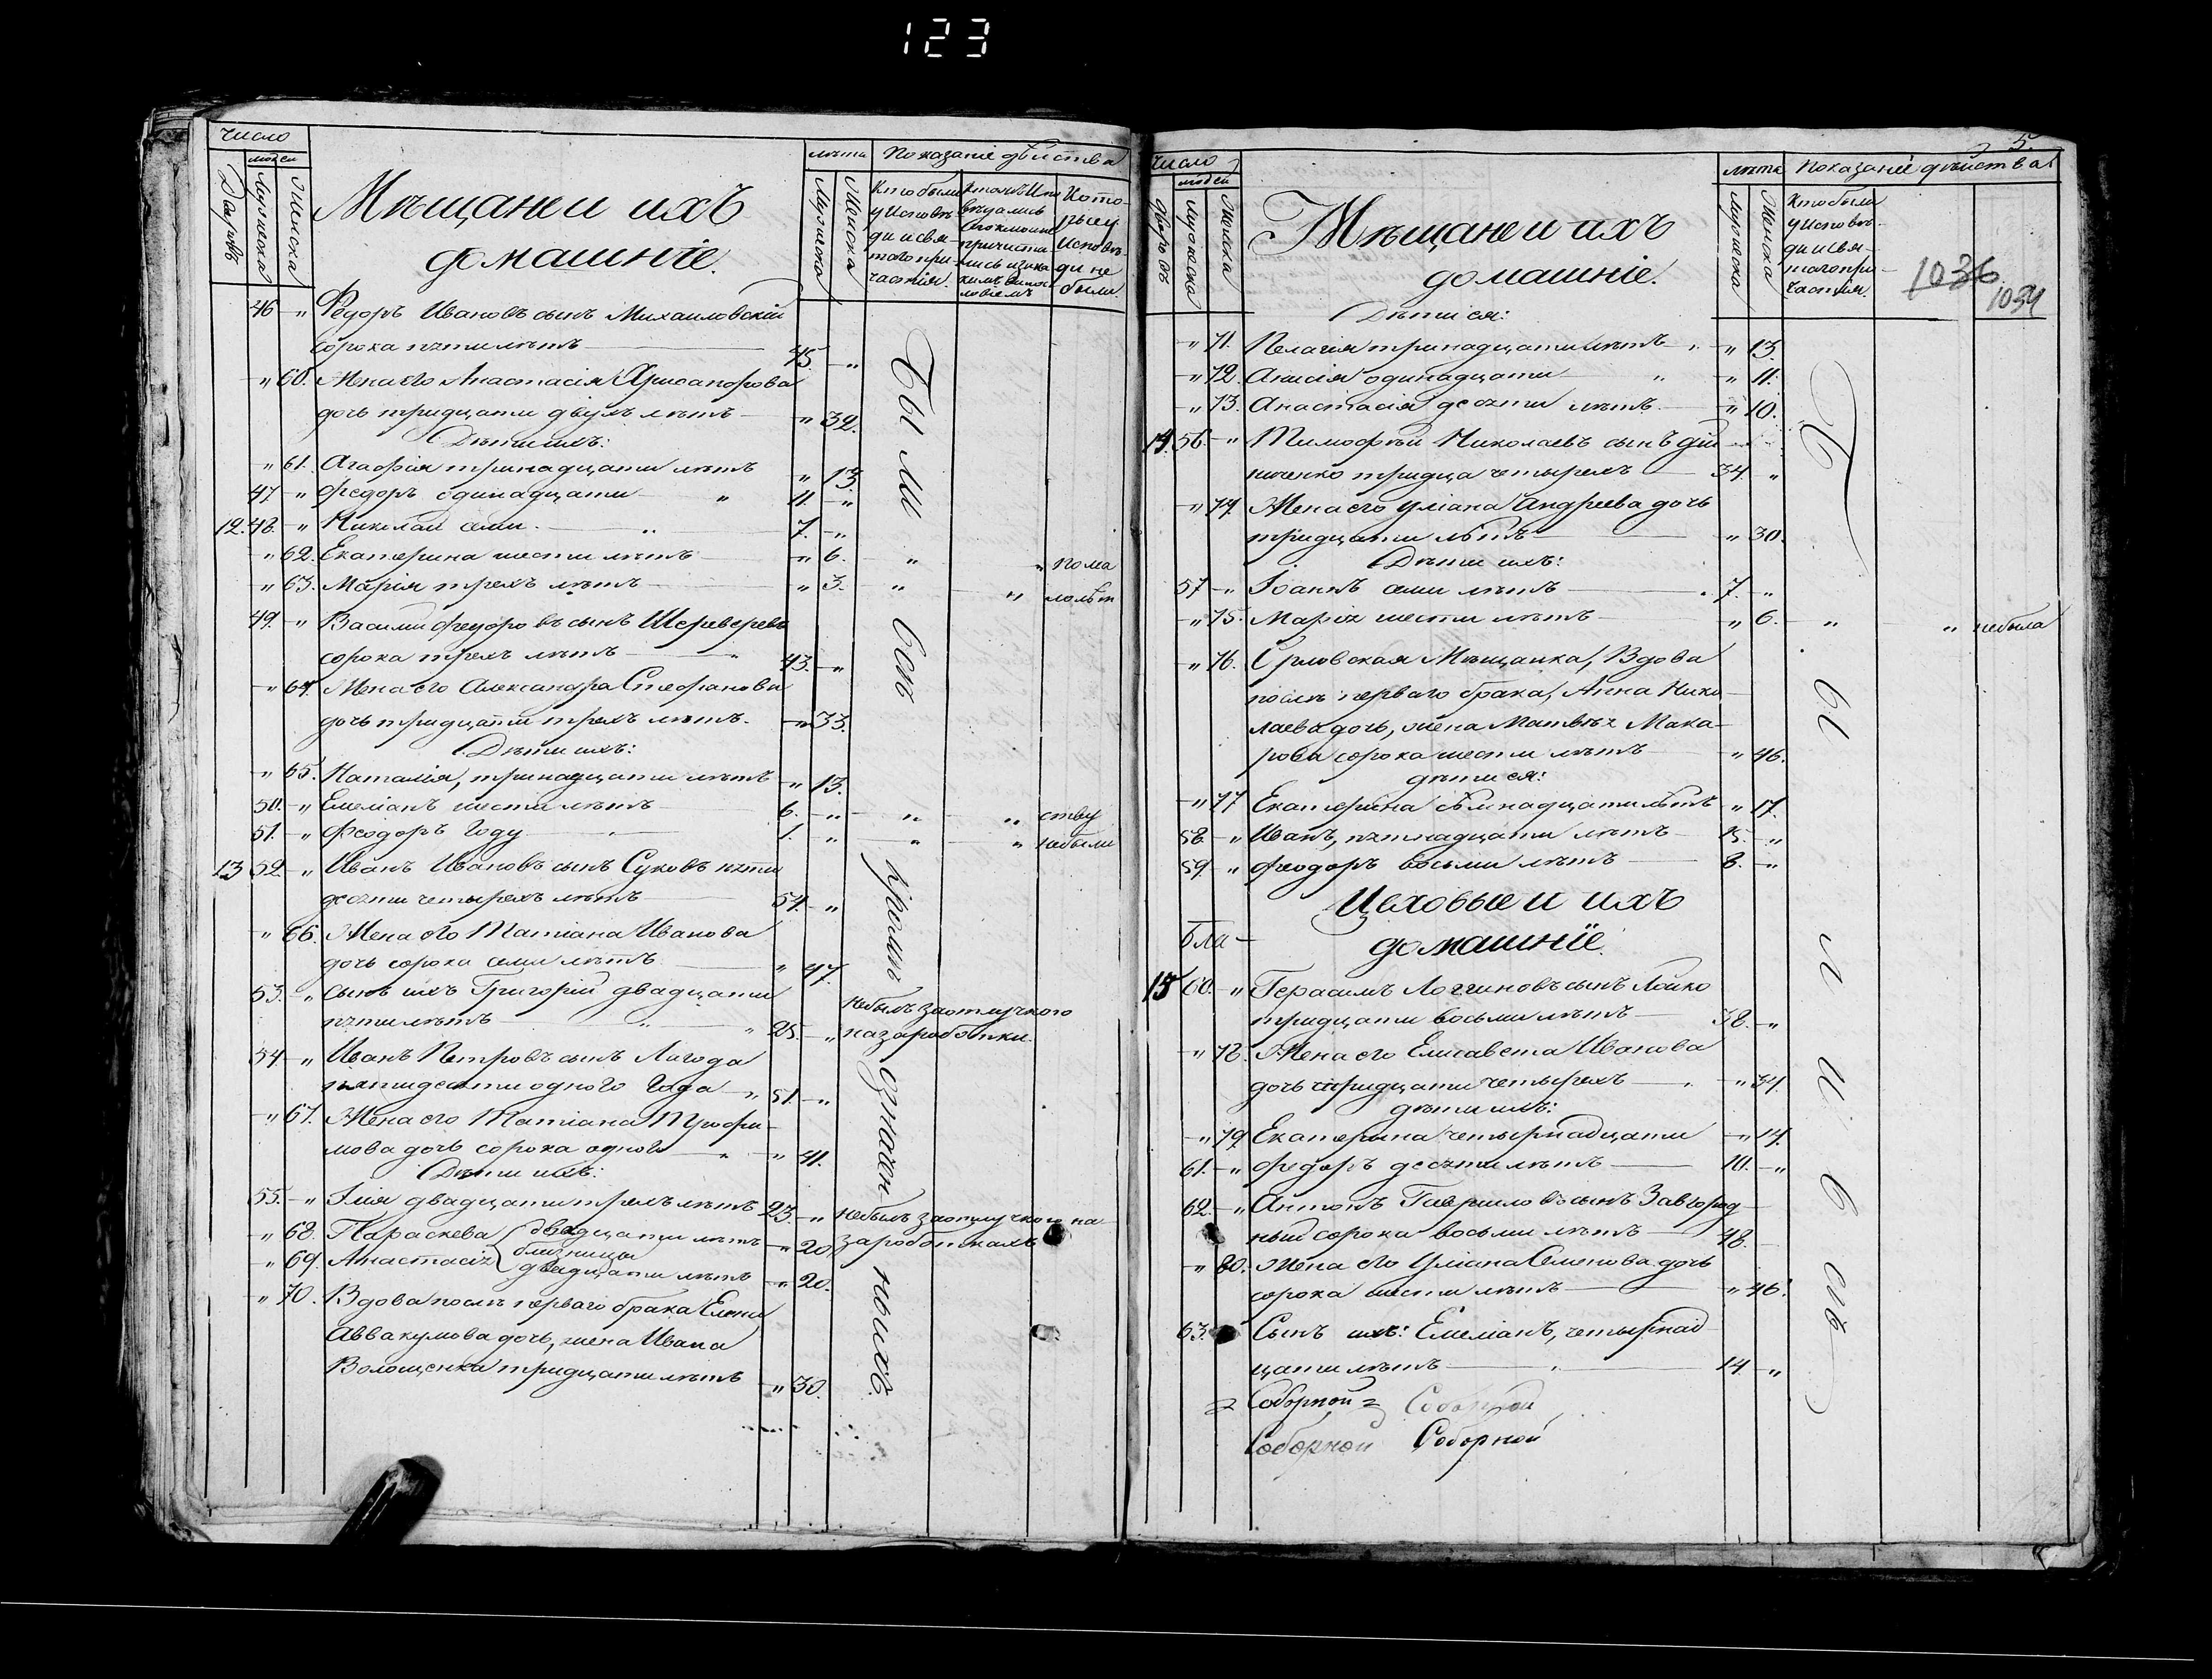 123
число
людей
Дворовъ
Мужеска
Женска
Мѣщане и ихъ
домашніе.
лѣта
Мужеска
Женска
Показаніе дѣйства
Кто были
у Исповѣ-
ди и свя-
таго при-
частія.
Кото-
рые у
Исповѣ-
ди не
были.
46 " Федоръ Ивановъ сынъ Михаиловскій
сорока пяти лѣтъ 45. "
" 60. Жена его Анастасія Хрисанфова
дочь тридцати двухъ лѣтъ " 32.
Дѣти ихъ:
" 61. Агафія тринадцати лѣтъ " 13.
47 " Федоръ одинадцати " 11. "
12. 48. " Николай семи. " 7. "
" 62. Екатерина шести лѣтъ " 6. " " по ма
" 63. Марія трехъ лѣтъ " 3. " " лолѣт
49. " Василій Федоровъ сынъ Шереверевъ
сорока трехъ лѣтъ " 43. "
" 64. Жена его Александра Стефанова
дочь тридцати трехъ лѣтъ. " 33.
Дѣти ихъ:
" 65. Наталія, тринадцати лѣтъ " 13.
50. " Емеліанъ шести лѣтъ 6. " " " ству
51. " Феодоръ Году " 1. " " " небыли
13 52. " Иванъ Ивановъ сынъ Суковъ пяти
десяти четырехъ лѣтъ 54. "
" 66. Жена его Татіана Иванова
дочь сорока семи лѣтъ " 47.
53. " Сынъ ихъ Григорій двадцати
пяти лѣтъ " " 25. "
небылъ заотлучкою
на заработки.
54. " Иванъ Петровъ сынъ Лагода
пятидесяти одного Года " 51. "
" 67. Жена его Татіана Трофи-
мова дочь сорока одного " " 41.
Дѣти ихъ:
55. " Илія двадцати трехъ лѣтъ 23. " небылъ заотлучкою на
заработкахъ
" 68. Параскева двадцати лѣтъ " 20.
близницы
" 69. Анастасія двадцати лѣтъ " 20.
" 70. Вдова послѣ перваго брака Елена
Аввакумова дочь, жена Ивана
Волощенка тридцати лѣтъ " 30.
Были всѣ кромѣ означенныхъ.
5.
число
людей
Дворовъ
Мужеска
Женска
Мѣщане и ихъ
домашніе.
лѣта
Мужеска
Женска
Показаніе дѣйства
Кто были
у Исповѣ-
ди и свя-
таго при-
частія.
1036
1034
Дѣти ея:
" 71. Пелагія тринадцати лѣтъ " " 13.
" 72. Анисія одинадцати " " 11.
" 73. Анастасія десяти лѣтъ. " 10.
14. 56. " Тимофѣй Николаевъ сынъ Ди
ниченко тридца четырехъ 34. "
" 74. Жена его Уліана Андреева дочь
тридцати лѣтъ " 30.
Дѣти ихъ:
57 " Іоаннъ семи лѣтъ 7. "
" 75. Марія шести лѣтъ " 6. " " небыла
" 76. Орловская Мѣщанка, Вдова
послѣ перваго брака, Анна Нико-
лаева дочь, жена Матвѣя Мака-
рова сорока шести лѣтъ " 46.
дѣти ея:
" 77 Екатерина сѣмнадцати лѣтъ " 17.
58. " Иванъ, пятнадцати лѣтъ 15. "
59. " Феодоръ восьми лѣтъ 8. "
Цеховые и ихъ
домашніе.
Бла-
15 60. " Герасимъ Логгиновъ сынъ Лойко
тридцати восьми лѣтъ 38. "
" 78. Жена его Елисавета Иванова
дочь тридцати четырехъ " " 34.
дѣти ихъ:
" 79. Екатерина четырнадцати " 14.
61. " Федоръ десяти лѣтъ 10. "
62. " Антонъ Гавриловъ сынъ Завгород-
ный сорока восьми лѣтъ 48.
" 80. Жена его Уліана Семенова дочь
сорока шести лѣтъ " 46.
63. Сынъ ихъ: Емеліанъ, четырнад-
цати лѣтъ " 14. "
Соборной Соборной
Соборной Соборной
Были всѣ